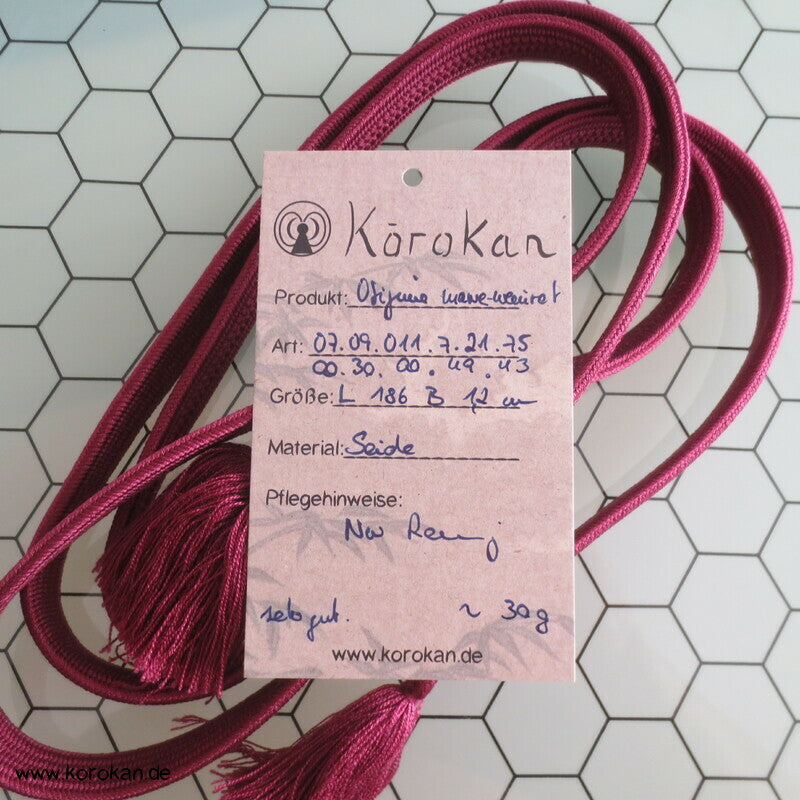 Kōrokan
Produkt: Obijime mauve-weinrot
Art: 07.09.011.7.21.75
00.30.00.49.43
Größe: L 186 B 1,2 cm
Material: Seide
Pflegehinweise:
sehr gut. ~ 30g
www.korokan.de
www.korokan.de